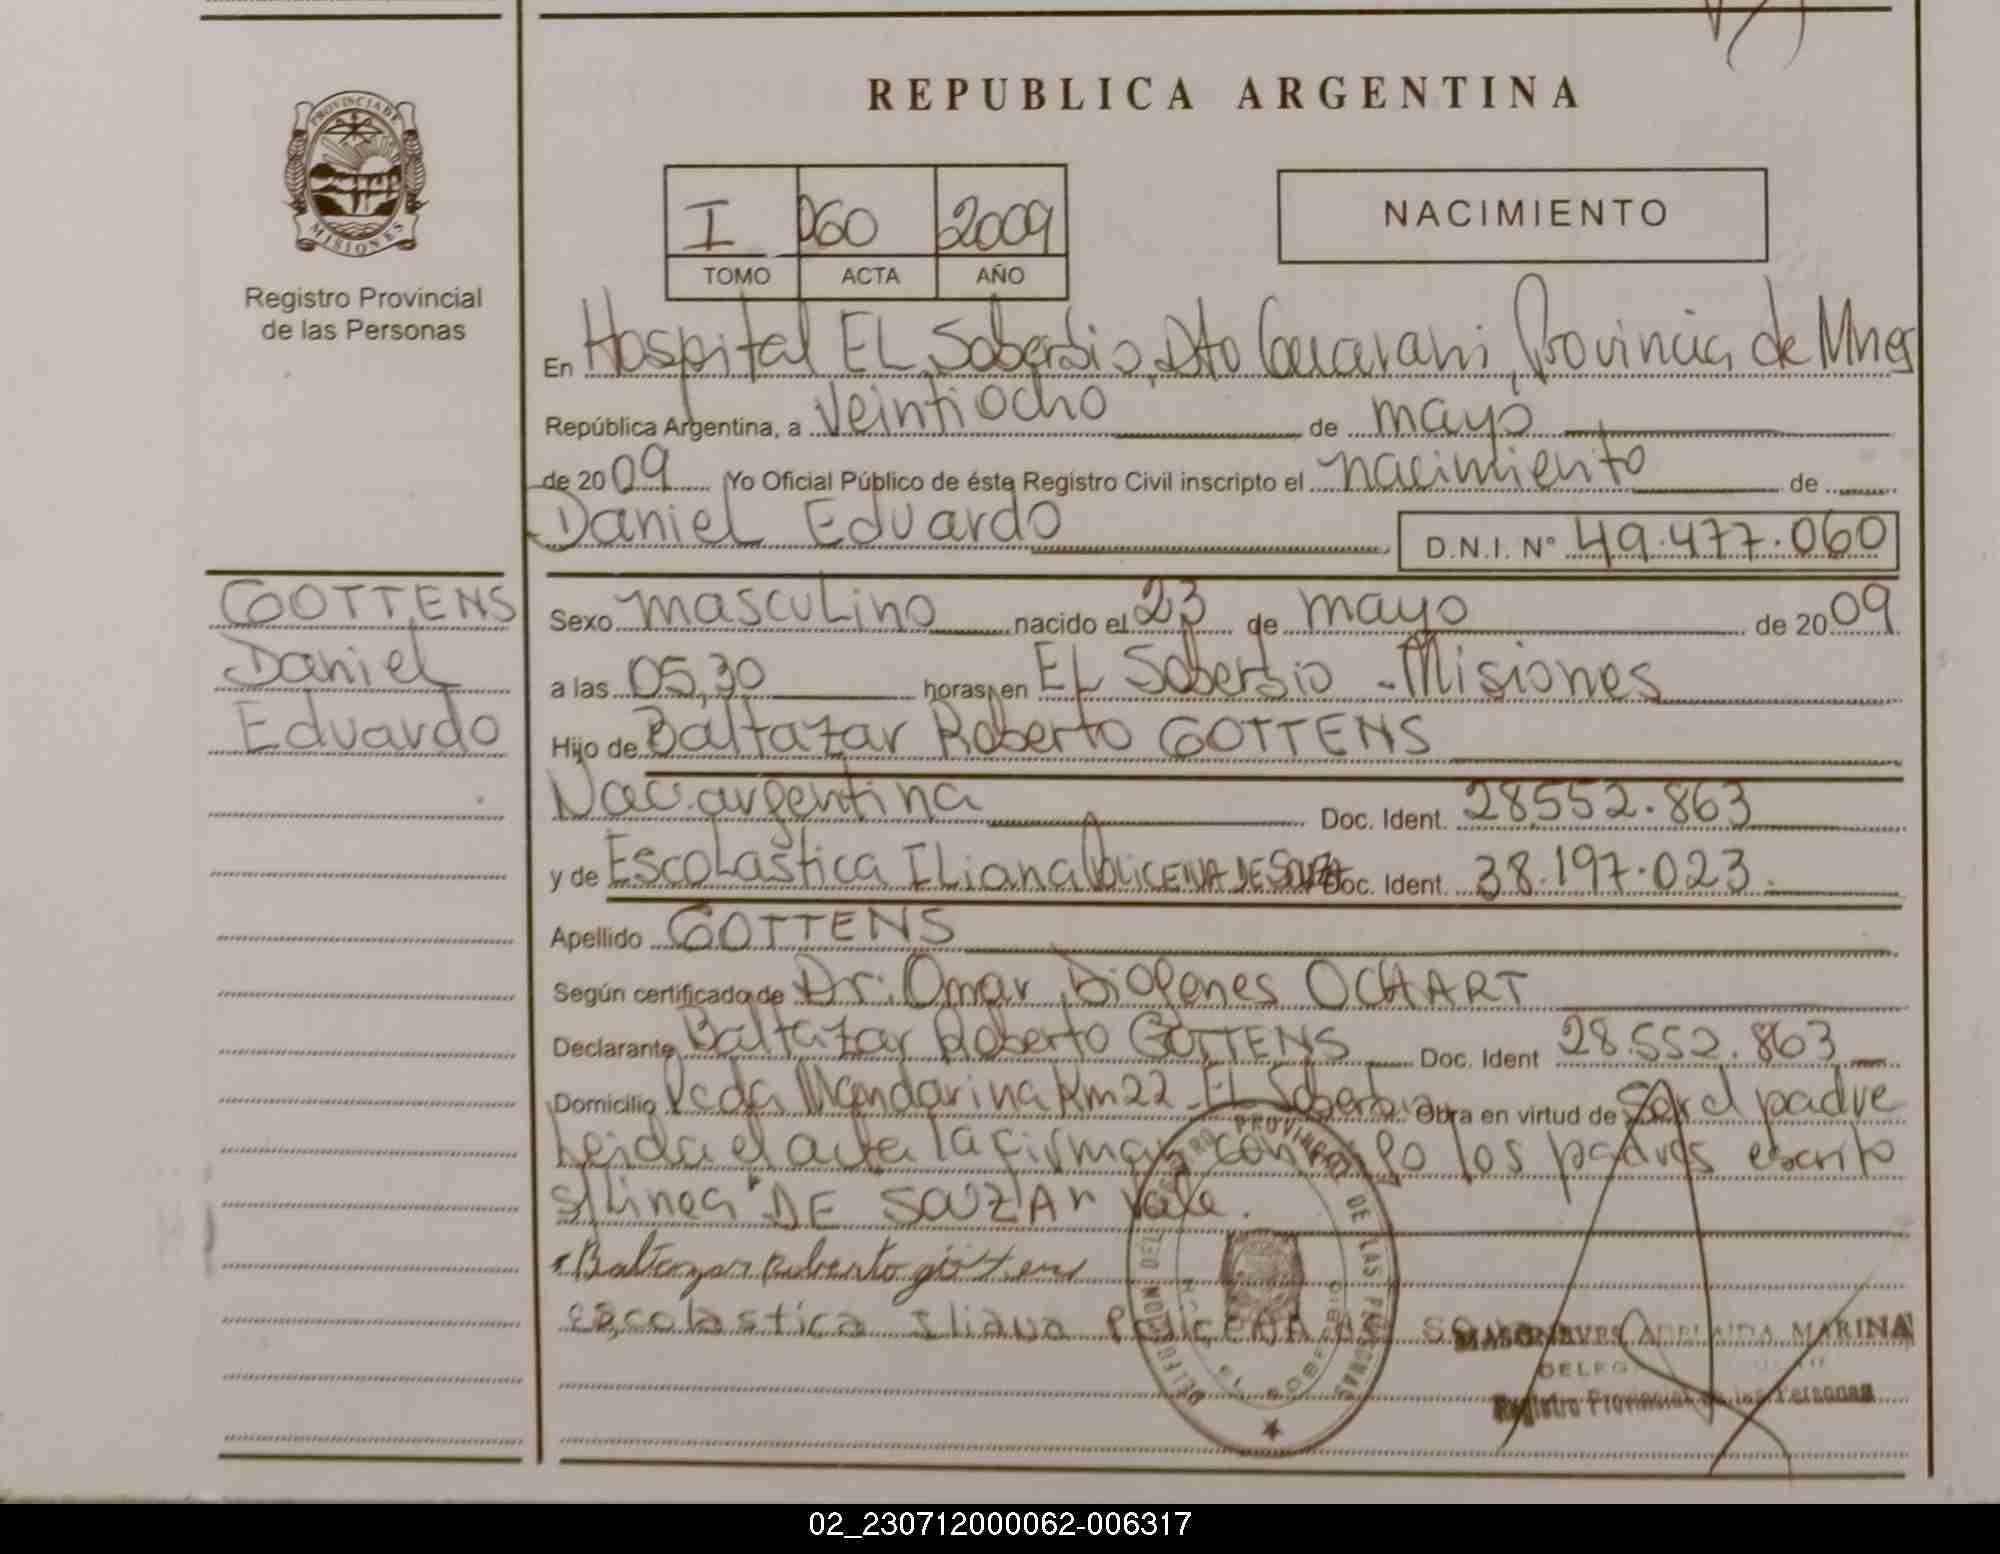 REPUBLICA ARGENTINA
PROVINCIA DE MISIONES
Registro Provincial
de las Personas
I 060 2009
TOMO ACTA AÑO
NACIMIENTO
En Hospital EL Soberbio, Dto Guarani, Provincia de Mnes
República Argentina, a veintiocho de mayo
de 2009 Yo Oficial Público de éste Registro Civil inscripto el nacimiento de
Daniel Eduardo D.N.I. N° 49.477.060
GOTTENS
Daniel
Eduardo
Sexo masculino nacido el 23 de mayo de 2009
a las 05,30 horas, en EL Soberbio - Misiones
Hijo de Baltazar Roberto GOTTENS
Nac. argentina Doc. Ident. 28.552.863
y de Escolastica Iliana POLICENA DE SOUZA Doc. Ident. 38.197.023.
Apellido GOTTENS
Según certificado de Dr. Omar Diogenes OCHART
Declarante Baltazar Roberto GOTTENS Doc. Ident 28.552.863
Domicilio Pcda Mandarina Km 22 - EL Soberbio Obra en virtud de Ser el padre
Leida el acta la firman los padres escrito
s/linea "DE SOUZA" Vale.
Baltazar Roberto gottens
escolastica iliana
ADELAIDA MARINA
Registro Provincial de las Personas
REGISTRO PROVINCIAL DE LAS PERSONAS
EL SOBERBIO
02_230712000062-006317